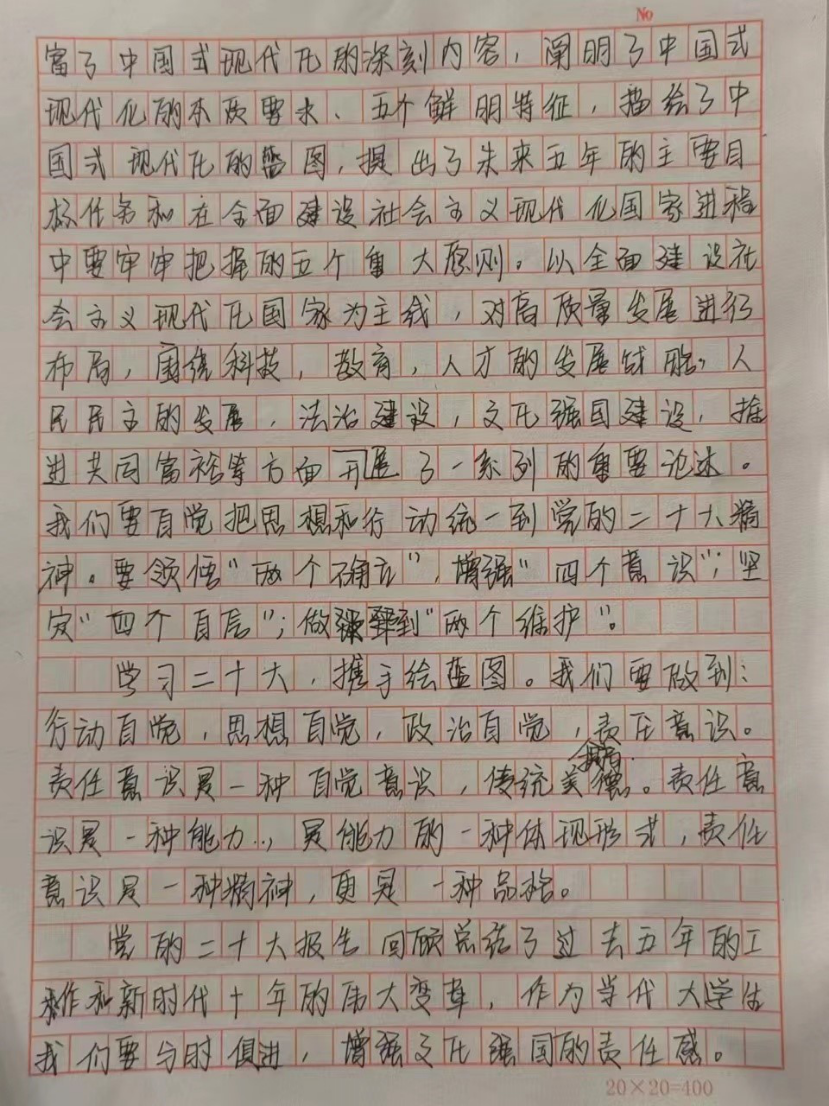 No
富了中国式现代化的深刻内容，阐明了中国式
现代化的本质要求、五个鲜明特征，描绘了中
国式现代化的蓝图，提出了未来五年的主要目
标任务和在全面建设社会主义现代化国家进程
中要牢牢把握的五个重大原则。以全面建设社
会主义现代化国家为主线，对高质量发展进行
布局，围绕科技，教育，人才的发展战略，人
民民主的发展，法治建设，文化强国建设，推
进共同富裕等方面开展了一系列的重要论述。
我们要自觉把思想和行动统一到党的二十大精
神。要领悟“两个确立”，增强“四个意识”；坚
定“四个自信”；做到“两个维护”。
学习二十大，携手绘蓝图。我们要做到：
行动自觉，思想自觉，政治自觉，责任意识。
责任意识是一种自觉意识，传统美德。责任意
识是一种能力，是能力的一种体现形式，责任
意识是一种精神，更是一种品格。
党的二十大报告回顾总结了过去五年的工
作和新时代十年的伟大变革，作为当代大学生
我们要与时俱进，增强文化强国的责任感。
20×20=400